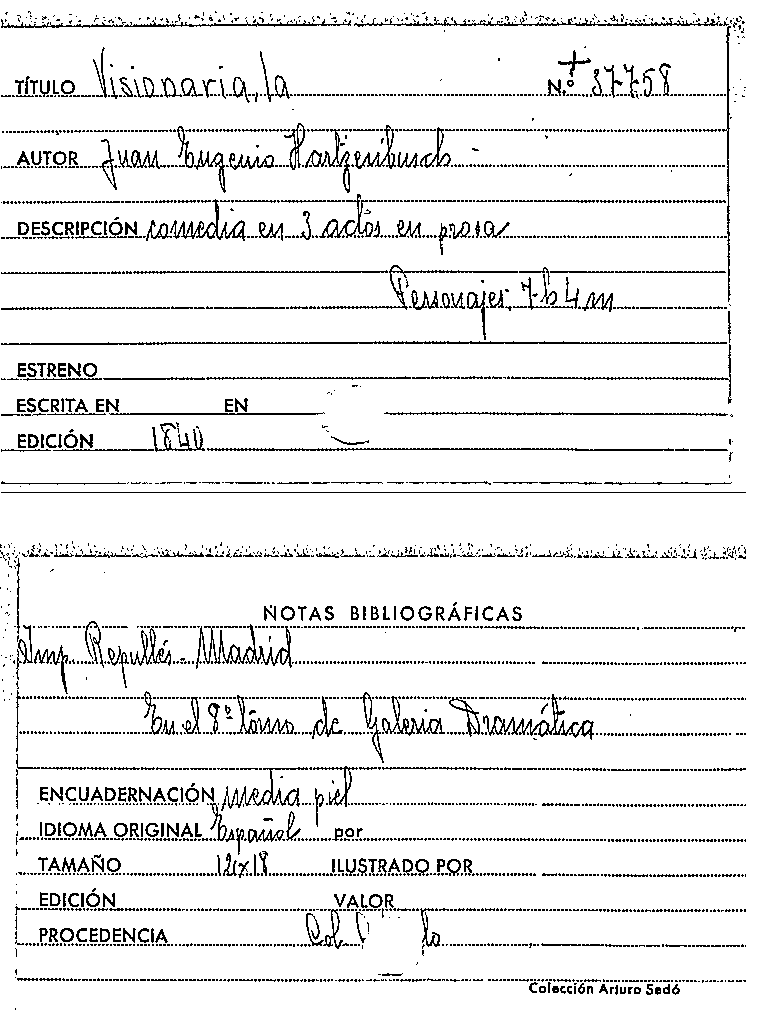 TÍTULO Visionaria, la N.º 37758
AUTOR Juan Eugenio Hartzenbusch -
DESCRIPCIÓN comedia en 3 actos en prosa
Personajes: 7 h 4 m
ESTRENO
ESCRITA EN EN
EDICIÓN 1840
NOTAS BIBLIOGRÁFICAS
Imp. Repullés - Madrid
En el 8º tomo de Galeria Dramática
ENCUADERNACIÓN media piel
IDIOMA ORIGINAL Español por
TAMAÑO 12x18 ILUSTRADO POR
EDICIÓN VALOR
PROCEDENCIA Col.
Colección Arturo Sedó